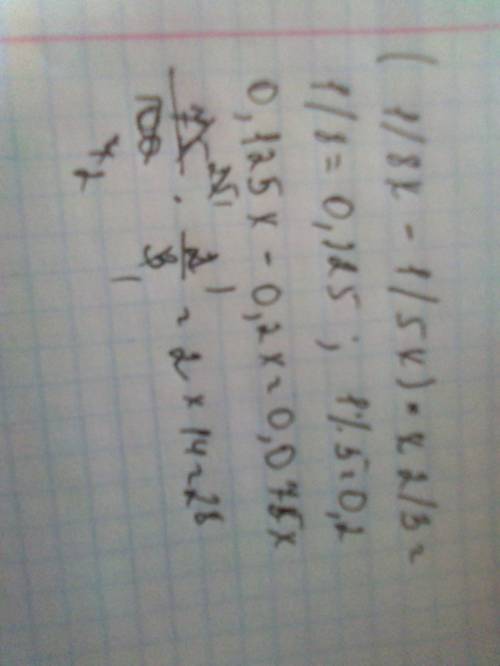 ( 1/8x - 1/5x) · x 2/3 =
1/8 = 0,125 ; 1/5 = 0,2
0,125x - 0,2x = 0,075x
75/100 · 2/3 = 2 x 14 = 28